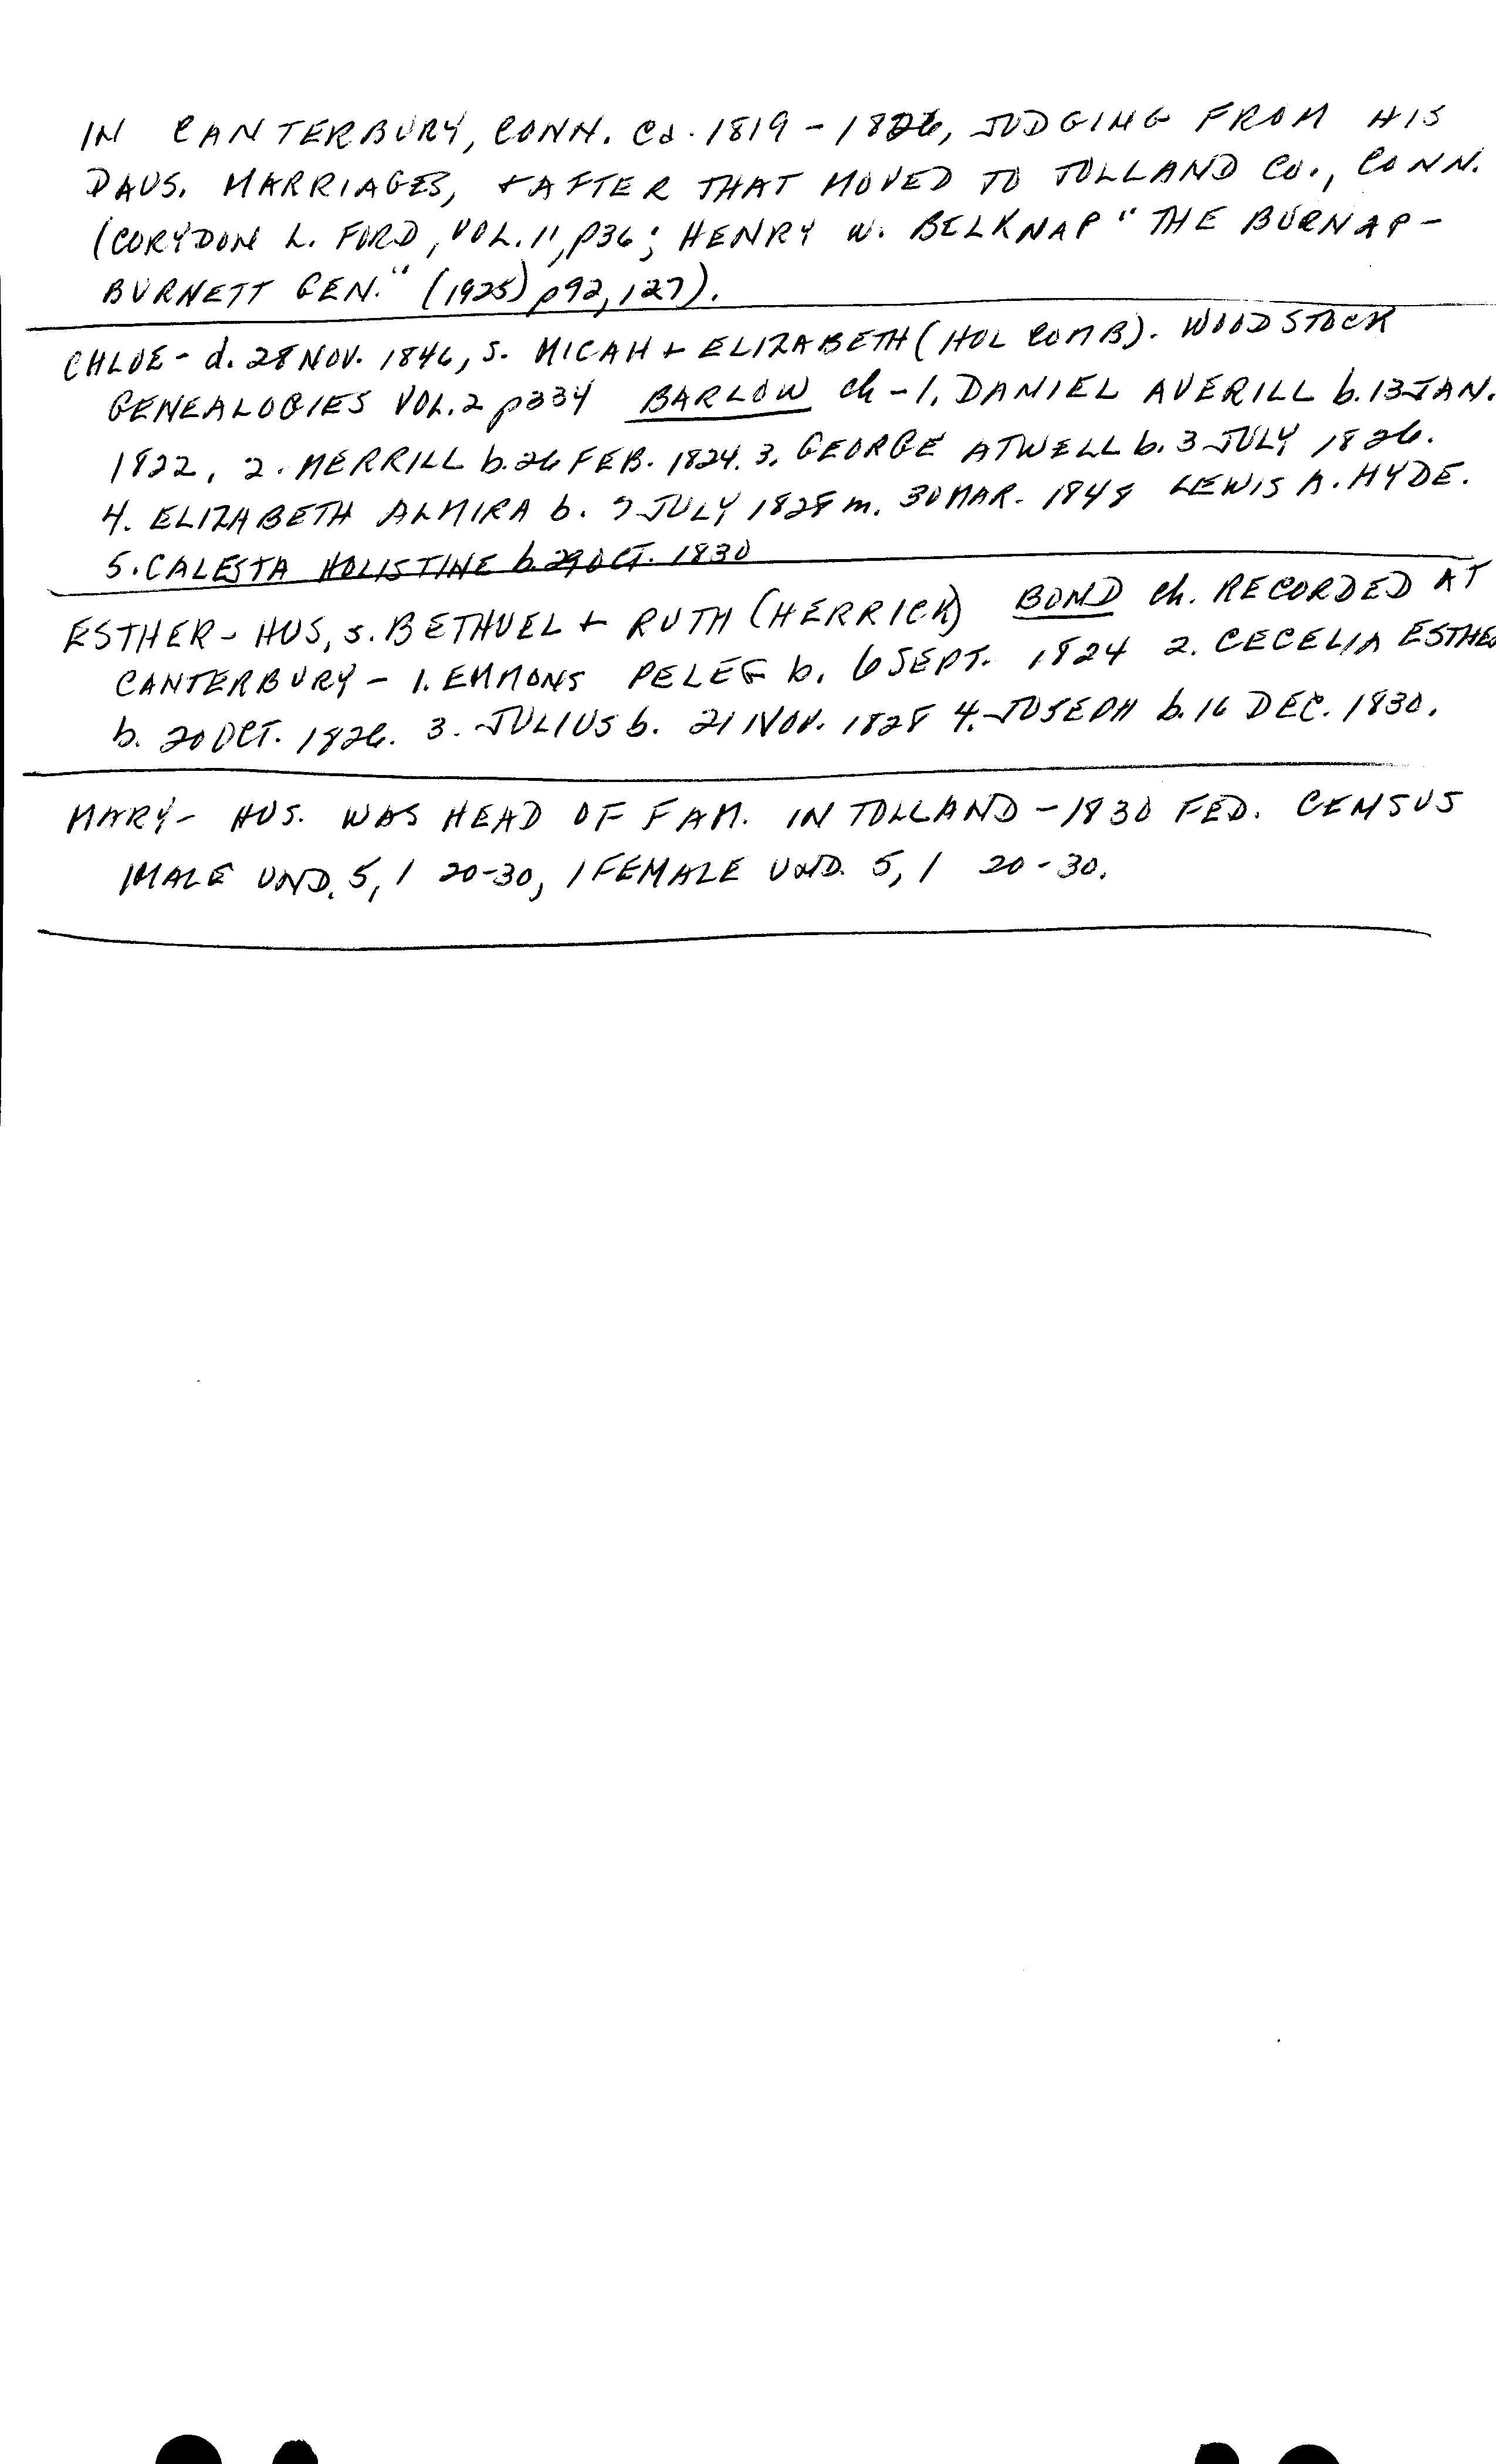 IN CANTERBURY, CONN. Ca. 1819 - 1826, JUDGING FROM HIS
DAUS. MARRIAGES, + AFTER THAT MOVED TO TOLLAND CO., CONN.
(CORYDON L. FORD, VOL. 11, p36; HENRY W. BELKNAP "THE BURNAP-
BURNETT GEN." (1925) p92, 127).
CHLOE - d. 28 NOV. 1846, S. MICAH + ELIZABETH (HOLCOMB). WOODSTOCK
GENEALOGIES VOL. 2 p334 BARLOW ch - 1. DANIEL AVERILL b. 13 JAN.
1822, 2. MERRILL b. 26 FEB. 1824. 3. GEORGE ATWELL b. 3 JULY 1826.
4. ELIZABETH ALMIRA b. 7 JULY 1828 m. 30 MAR. 1848 LEWIS A. HYDE.
5. CALESTA HOLISTINE b. 29 OCT. 1830
ESTHER - HUS, s. BETHUEL + RUTH (HERRICK) BOND ch. RECORDED AT
CANTERBURY - 1. EMMONS PELEG b. 6 SEPT. 1824 2. CECELIA ESTHER
b. 20 OCT. 1826. 3. JULIUS b. 21 NOV. 1828 4. JOSEPH b. 16 DEC. 1830.
MARY - HUS. WAS HEAD OF FAM. IN TOLLAND - 1830 FED. CENSUS
1 MALE UND. 5, 1 20-30, 1 FEMALE UND. 5, 1 20-30.